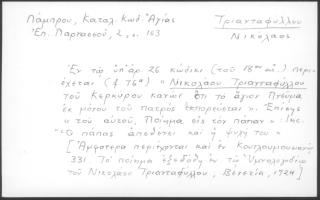 Λάμπρου, Καταλ. Κωδ. Ἁγίας
Τριανταφύλλου
Ἐπ. Παρνασσοῦ, 2, σ. 153
Νικόλαος
Ἐν τῷ ὑπ' ἀρ. 26 κώδικι (τοῦ 18ου αἰ.) περι-
έχεται (f. 76α) "Νικολάου Τριανταφύλλου
τοῦ Κερκύρου κανὼν ὅτι τὸ ἅγιον Πνεῦμα
ἐκ μόνου τοῦ πατρὸς ἐκπορεύεται". Ἐπίσης
"τοῦ αὐτοῦ, Ποίημα εἰς τὸν πάπαν": Inc.
"Ὁ πάπας ἀπέθετο καὶ ἡ ψυχή του"
[Ἀμφότερα περιέχονται καὶ ἐν Κουτλουμουσιανῷ
331. Τὸ ποίημα ἐξεδόθη ἐν τῷ Ὑμνολογίῳ
τοῦ Νικολάου Τριανταφύλλου, Βενετία, 1724]